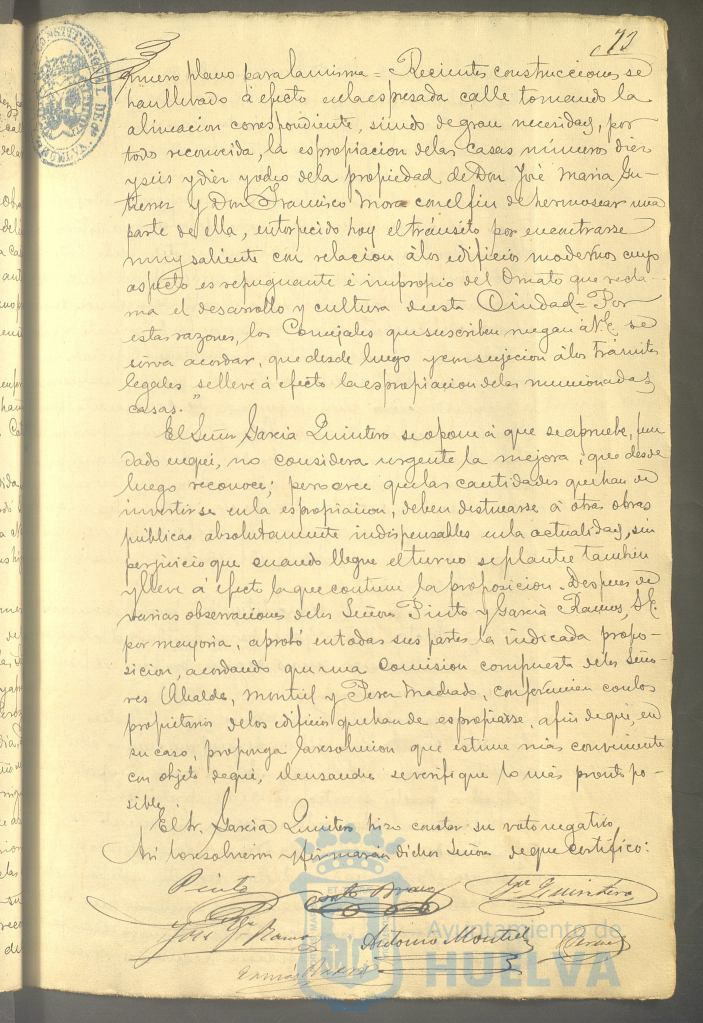 73
nuevo plano para la misma = Recientes construcciones se
han llevado á efecto en la espresada calle tomando la
alineacion correspondiente, siendo de gran necesidad, por
todo reconocida, la espropiacion de las casas números diez
y seis y diez y ocho de la propiedad de Don José Maria Gu-
tierrez y Don Francisco Mora con el fin de hermosear una
parte de ella, entorpecido hoy el tránsito por encontrarse
muy saliente con relacion á los edificios modernos cuyo
aspecto es repugnante é impropio del Ornato que recla-
ma el desarrollo y cultura de esta Ciudad = Por
estas razones, los Concejales que suscriben ruegan á V.E. se
sirva acordar, que desde luego y con sujecion á los trámites
legales se lleve á efecto la espropiacion de las mencionadas
casas."
El Señor Garcia Quintero se opone á que se apruebe, fun-
dado en que, no considera urgente la mejora, que desde
luego reconoce; pero cree que las cantidades que han de
invertirse en la espropiacion, deben destinarse á otras obras
públicas absolutamente indispensables en la actualidad, sin
perjuicio que cuando llegue el turno se plantee tambien
y lleve á efecto lo que contiene la proposicion. Despues de
varias observaciones de los Señores Pinto y Garcia Ramos, S.E.
por mayoria, aprobó en todas sus partes la indicada propo-
sicion, acordando que una Comision compuesta de los Seño-
res Alcalde, Montiel y Perez Machado, conferencien con los
propietarios de los edificios que han de espropiarse, a fin de que, en
su caso, proponga la resolucion que estime más conveniente
con objeto de que, el ensanche se verifique lo más pronto po-
sible.
El Sr. Garcia Quintero hizo constar su voto negativo
Asi lo resolvieron y firmaran dichos Señores de que certifico:
Pinto
Quintero
José Gª Ramos
Antonio Montiel
Ayuntamiento de
HUELVA